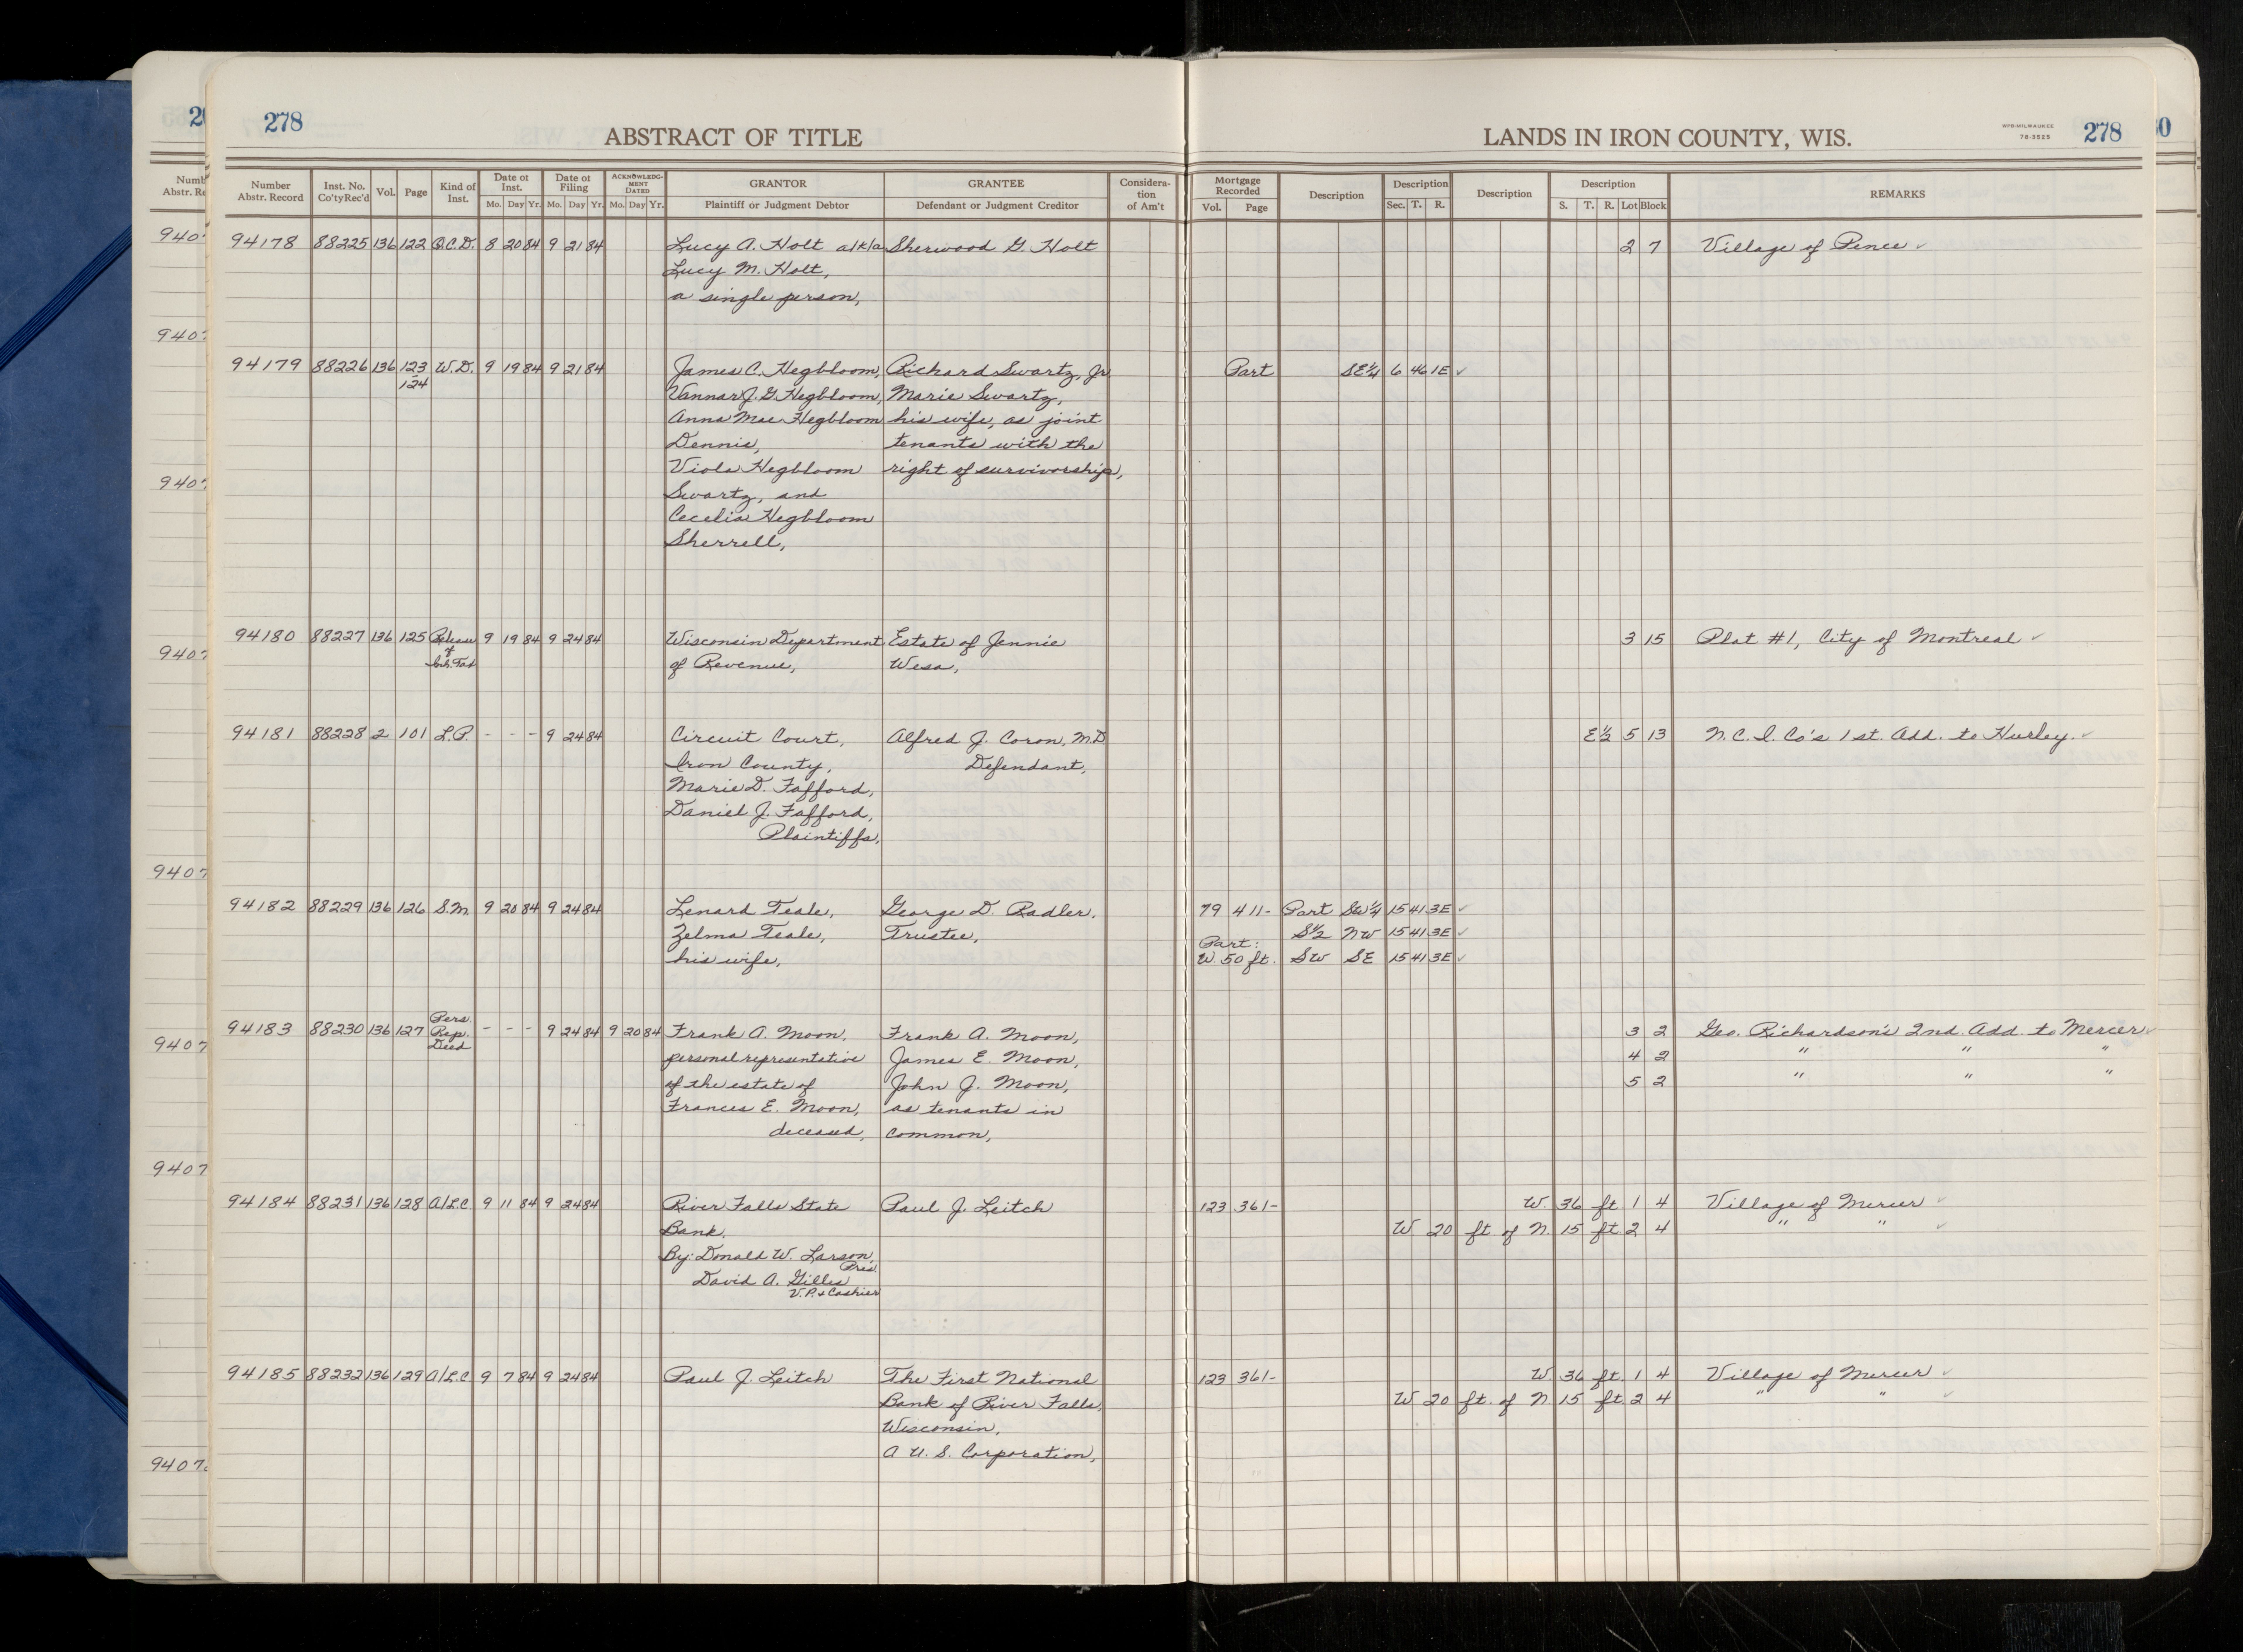 278
ABSTRACT OF TITLE
LANDS IN IRON COUNTY, WIS.
WPB-MILWAUKEE
78-3525
278
Number Abstr. Record
Inst. No. Co'tyRec'd
Vol.
Page
Kind of Inst.
Date of Inst.
Mo. Day Yr.
Date of Filing
Mo. Day Yr.
ACKNOWLEDGMENT DATED
Mo. Day Yr.
GRANTOR
Plaintiff or Judgment Debtor
GRANTEE
Defendant or Judgment Creditor
Consideration of Am't
Mortgage Recorded
Vol. Page
Description
Description
Sec. T. R.
Description
Description
S. T. R. Lot Block
REMARKS
94178 88225 136 122 Q.C.D. 8 20 84 9 21 84 Lucy A. Holt a/k/a Sherwood G. Holt 2 7 Village of Pence ✓
Lucy M. Holt,
a single person,
94179 88226 136 123 W.D. 9 19 84 9 21 84 James C. Hegbloom, Richard Swartz, Jr Part SE¼ 6 46 1E ✓
124 Vannar J. G. Hegbloom, Marie Swartz,
Anna Mae Hegbloom his wife, as joint
Dennis, tenants with the
Viola Hegbloom right of survivorship,
Swartz, and
Cecelia Hegbloom
Sherrell,
94180 88227 136 125 Release 9 19 84 9 24 84 Wisconsin Department Estate of Jennie 3 15 Plat #1, City of Montreal ✓
of
Inh. Tax of Revenue, Wesa,
94181 88228 2 101 L.P. - - - 9 24 84 Circuit Court, Alfred J. Coron, M.D. E½ 5 13 N.C.I. Co's 1st. Add. to Hurley ✓
Iron County, Defendant,
Marie D. Fafford,
Daniel J. Fafford,
Plaintiffs,
94182 88229 136 126 S.M. 9 20 84 9 24 84 Lenard Teale, George D. Radler, 79 411- Part SW¼ 15 41 3E ✓
Zelma Teale, Trustee, Part: S½ NW 15 41 3E ✓
his wife, W 50 ft. SW SE 15 41 3E ✓
94183 88230 136 127 Pers. Rep. Deed - - - 9 24 84 9 20 84 Frank A. Moon, Frank A. Moon, 3 2 Geo. Richardson's 2nd. Add. to Mercer ✓
personal representative James E. Moon, 4 2 " " "
of the estate of John J. Moon, 5 2 " " "
Frances E. Moon, as tenants in
deceased, common,
94184 88231 136 128 A/L.C 9 11 84 9 24 84 River Falls State Paul J. Leitch 123 361- W. 36 ft. 1 4 Village of Mercer ✓
Bank, W 20 ft. of N. 15 ft. 2 4 " " ✓
By: Donald W. Larson,
Pres.
David A. Gilles
V.P. & Cashier
94185 88232 136 129 A/L.C 9 7 84 9 24 84 Paul J. Leitch The First National 123 361- W. 36 ft. 1 4 Village of Mercer ✓
Bank of River Falls, W 20 ft. of N. 15 ft. 2 4 " " ✓
Wisconsin,
A U.S. Corporation,